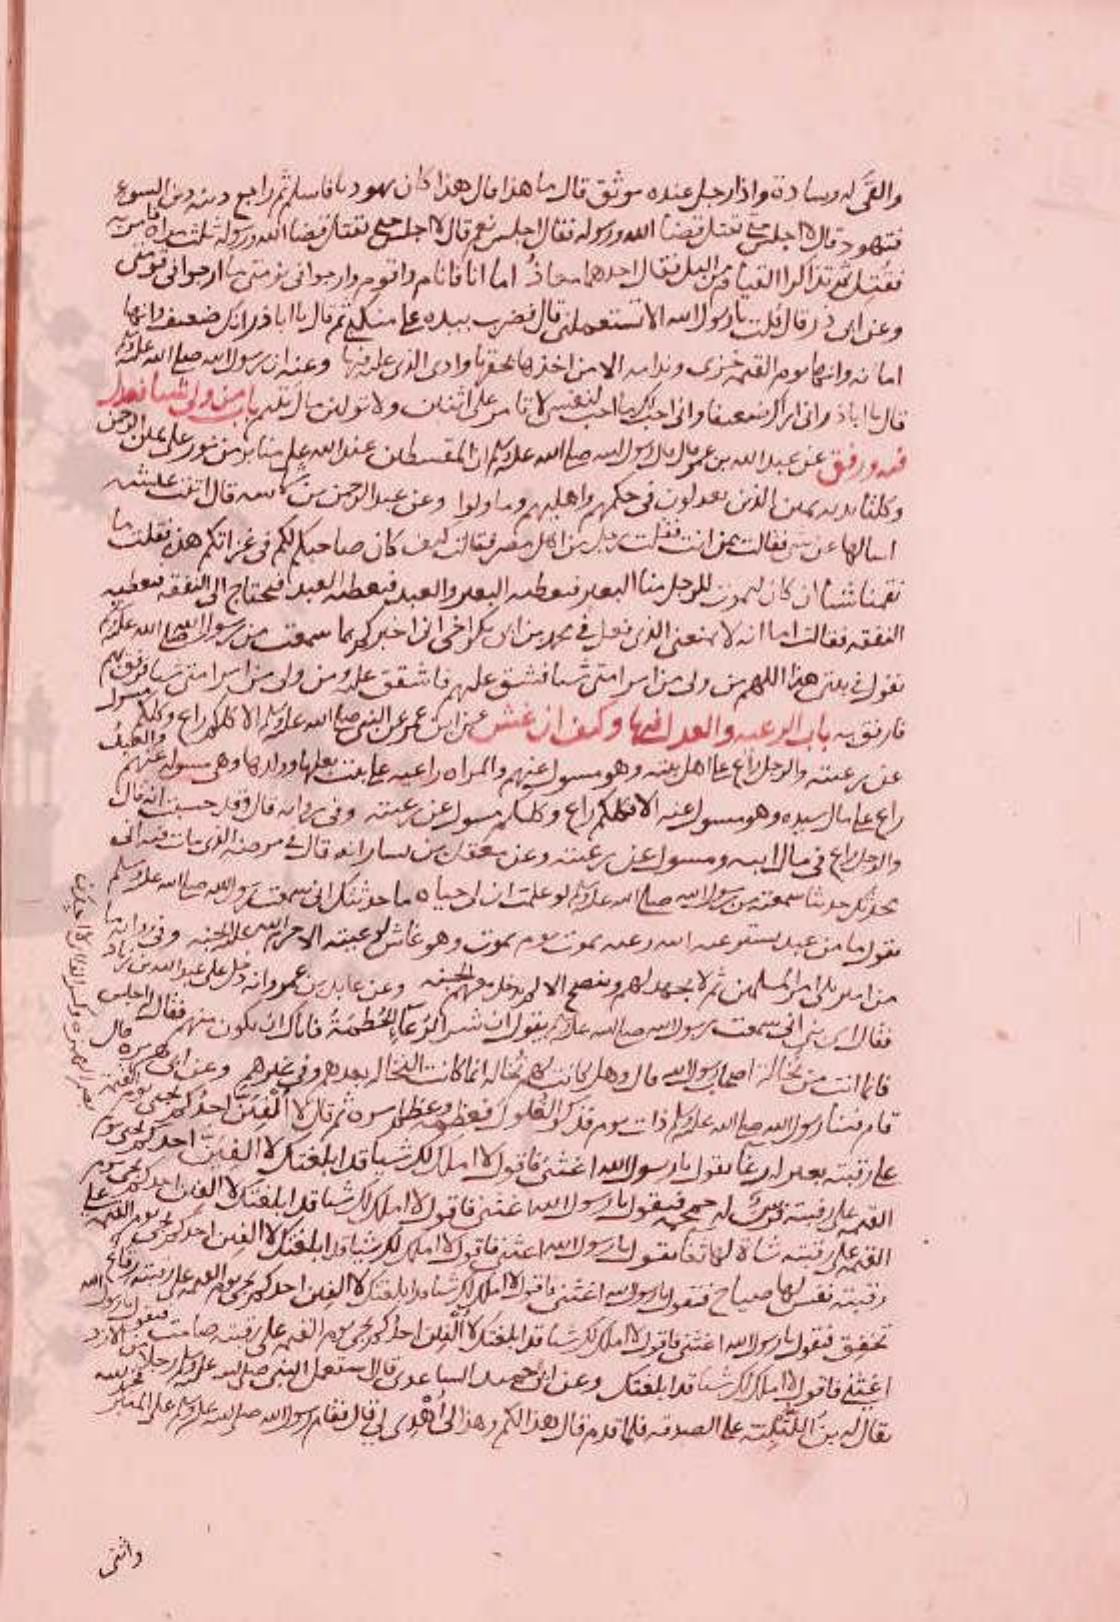 والقى له وسادة واذا رجل عنده موثق قال ما هذا قال هذا كان يهوديا فاسلم ثم راجع دينه دين السوء
فتهود قال لا اجلس حتى يقتل قضا الله ورسوله فقال اجلس نعم قال لا اجلس حتى يقتل قضا الله ورسوله ثلث مراة فامر به
فقُتِل ثم تذاكرا القيام من اليل فقال احدهما معاذٌ اما انا فانام واقوم وارجوا في نومتي ما ارجوا في قومتي
وعن ابى ذر قال قلت يا رسول الله الا تستعملني قال فضرب بيده على منكبي ثم قال يا ابا ذر انك ضعيف وانها
امانه وانها يوم القيمه خزى وندامه الا من اخذها بحقها وادى الذى عليه فيها وعنه ان رسول الله صلى الله عليه وسلم
قال يا ابا ذر انى اراك ضعيفا وانى احب لك ما احب لنفسي لا تامرن على اثنين ولا تولين مال يتيم باب من ولى شيا فعدل
فيه ورفق عن عبد الله بن عمرو قال قال رسول الله صلى الله عليه وسلم ان المقسطين عند الله على منابر من نور على يمين الرحمن
وكلتا يديه يمين الذين يعدلون فى حكمهم واهليهم وما ولوا وعن عبد الرحمن بن شماسه قال اتيت عايشه
اسالها عن شى فقالت ممن انت فقلت رجل من اهل مصر فقالت كيف كان صاحبكم لكم فى غزاتكم هذه فقلت ما
نقمنا شيا ان كان ليموت للرجل منا البعير فيعطيه البعير والعبد فيعطيه العبد ويحتاج الى النفقه فيعطيه
النفقه فقالت اما انه لا يمنعنى الذى فعل فى محمد بن ابى بكر اخى ان اخبركم بما سمعت من رسول الله صلى الله عليه وسلم
يقول فى بيتى هذا اللهم من ولى من امر امتى شيا فشق عليهم فاشقق عليه ومن ولى من امر امتى شيا فرفق بهم
فارفق به باب الرعيه والعدل فيها وكيف ان غش عن ابن عمر عن النبى صلى الله عليه وسلم الا كلكم راع وكلكم مسول
عن رعيته والرجل راع على اهل بيته وهو مسول عنهم والمراه راعيه على بيت بعلها وولدها وهى مسوله عنهم والعبد
راع على مال سيده وهو مسول عنه الا فكلكم راع وكلكم مسول عن رعيته وفى روايه قال وقد حسبت انه قال
والرجل راع فى مال ابيه ومسول عن رعيته وعن معقل بن يسار انه قال فى مرضه الذى مات فيه انى
محدثك حديثا سمعته من رسول الله صلى الله عليه وسلم لو علمت ان لى حياه ما حدثتك انى سمعت رسول الله صلى الله عليه وسلم
يقول ما من عبد يسترعيه الله رعيه يموت يوم يموت وهو غاش لرعيته الا حرم الله عليه الجنه وفى روايه ما
من امير يلى امر المسلمين ثم لا يجهد لهم وينصح الا لم يدخل معهم الجنه وعن عايذ بن عمرو انه دخل على عبيد الله بن زياد
فقال اى بنى انى سمعت رسول الله صلى الله عليه وسلم يقول ان شر الرُعآء الحُطَمَةُ فاياك ان تكون منهم فقال له اجلس
فانما انت من نُخالة اصحاب رسول الله قال وهل كانت لهم نُخاله انما كانت النخاله بعدهم وفى غيرهم وعن ابى هريره قال
قام فينا رسول الله صلى الله عليه وسلم ذات يوم فذكر الغُلول فعظمه وعظم امره ثم قال لا اُلْفِيَنَّ احدكم يجى يوم القيمه
على رقبته بعير له رغآ يقول يا رسول الله اغثنى فاقول لا املك لك شيا قد ابلغتك لا الفينّ احدكم يجى يوم
القيمه على رقبته فرس له حمحمه فيقول يا رسول الله اغثنى فاقول لا املك لك شيا قد ابلغتك لا الفين احدكم يجى يوم
القيمه على رقبته شاة لها ثغا يقول يا رسول الله اغثنى فاقول لا املك لك شيا قد ابلغتك لا الفين احدكم يجى يوم القيمه على
رقبته نفس لها صياح فيقول يا رسول الله اغثنى فاقول لا املك لك شيا قد ابلغتك لا الفين احدكم يجى يوم القيمه على رقبته رقاع
تخفق فيقول يا رسول الله اغثنى فاقول لا املك لك شيا قد ابلغتك لا اُلفين احدكم يجى يوم القيمه على رقبته صامت فيقول يا رسول الله
اغثنى فاقول لا املك لك شيا قد ابلغتك وعن ابى حميد الساعدى قال استعمل النبى صلى الله عليه وسلم رجلا من الازد
يقال له ابن اللُّتْبِيّة على الصدقه فلما قدم قال هذا لكم وهذا لى اُهْدِى لى قال فقام رسول الله صلى الله عليه وسلم على المنبر فحمد الله
واثنى